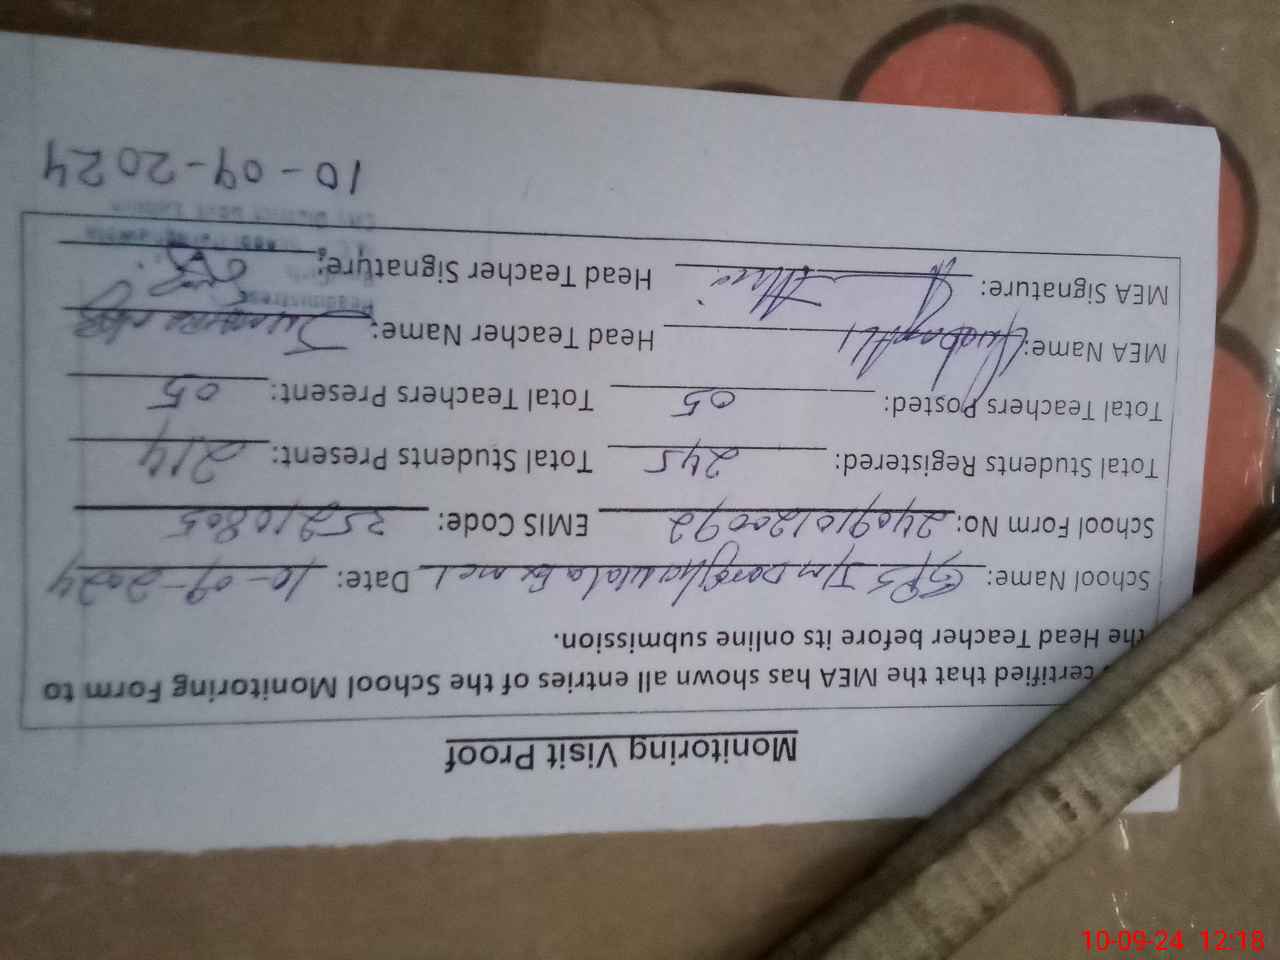 Monitoring Visit Proof
certified that the MEA has shown all entries of the School Monitoring Form to
the Head Teacher before its online submission.
School Name: GPS Date: 10-09-2024
School Form No: 240910120092 EMIS Code: 35210805
Total Students Registered: 245 Total Students Present: 214
Total Teachers Posted: 05 Total Teachers Present: 05
MEA Name: Head Teacher Name:
MEA Signature: Head Teacher Signature:
Headmistress
10-09-2024
10-09-24 12:18